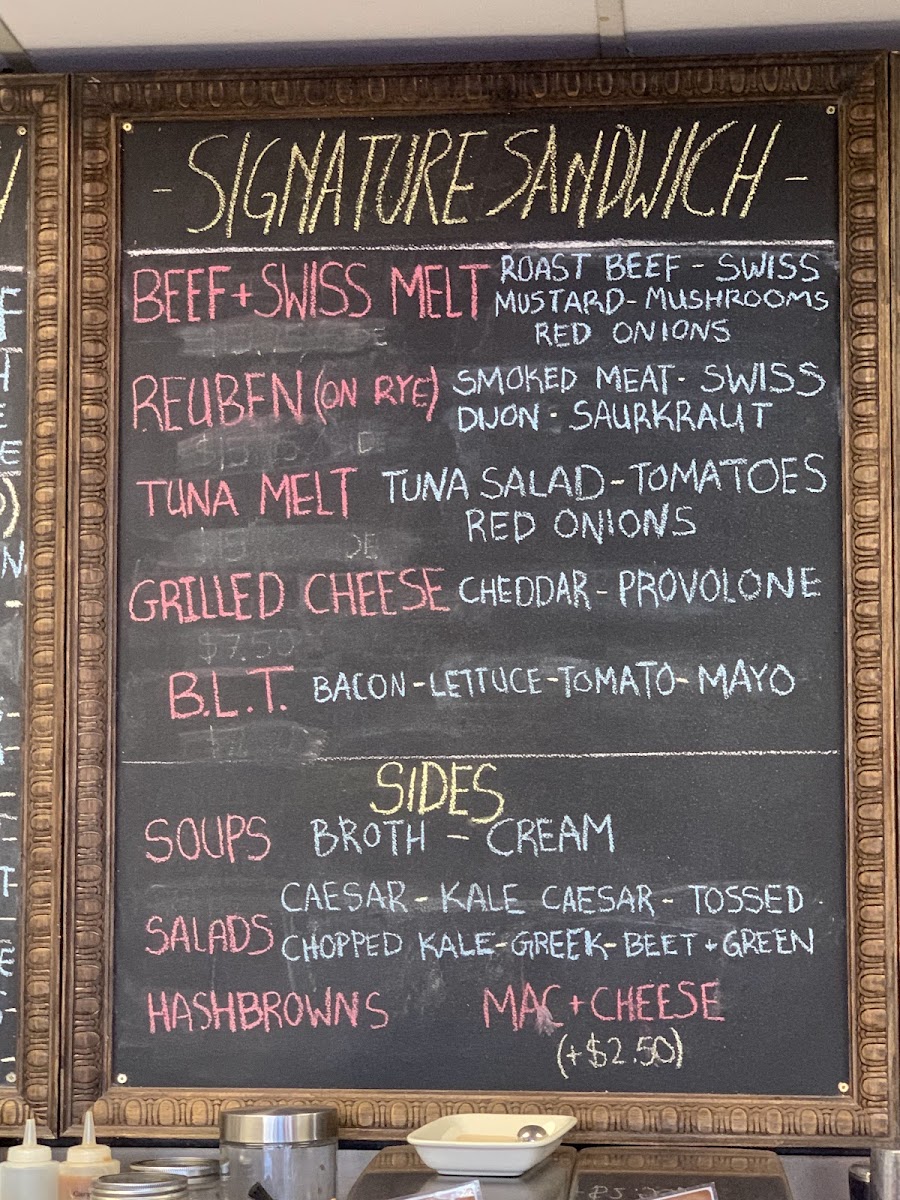 - SIGNATURE SANDWICH -
BEEF + SWISS MELT ROAST BEEF - SWISS
MUSTARD - MUSHROOMS
RED ONIONS
REUBEN (ON RYE) SMOKED MEAT - SWISS
DIJON - SAURKRAUT
TUNA MELT TUNA SALAD - TOMATOES
RED ONIONS
GRILLED CHEESE CHEDDAR - PROVOLONE
$7.50
B.L.T. BACON - LETTUCE - TOMATO - MAYO
SIDES
SOUPS BROTH - CREAM
SALADS CAESAR - KALE CAESAR - TOSSED
CHOPPED KALE - GREEK - BEET + GREEN
HASHBROWNS MAC + CHEESE
(+$2.50)